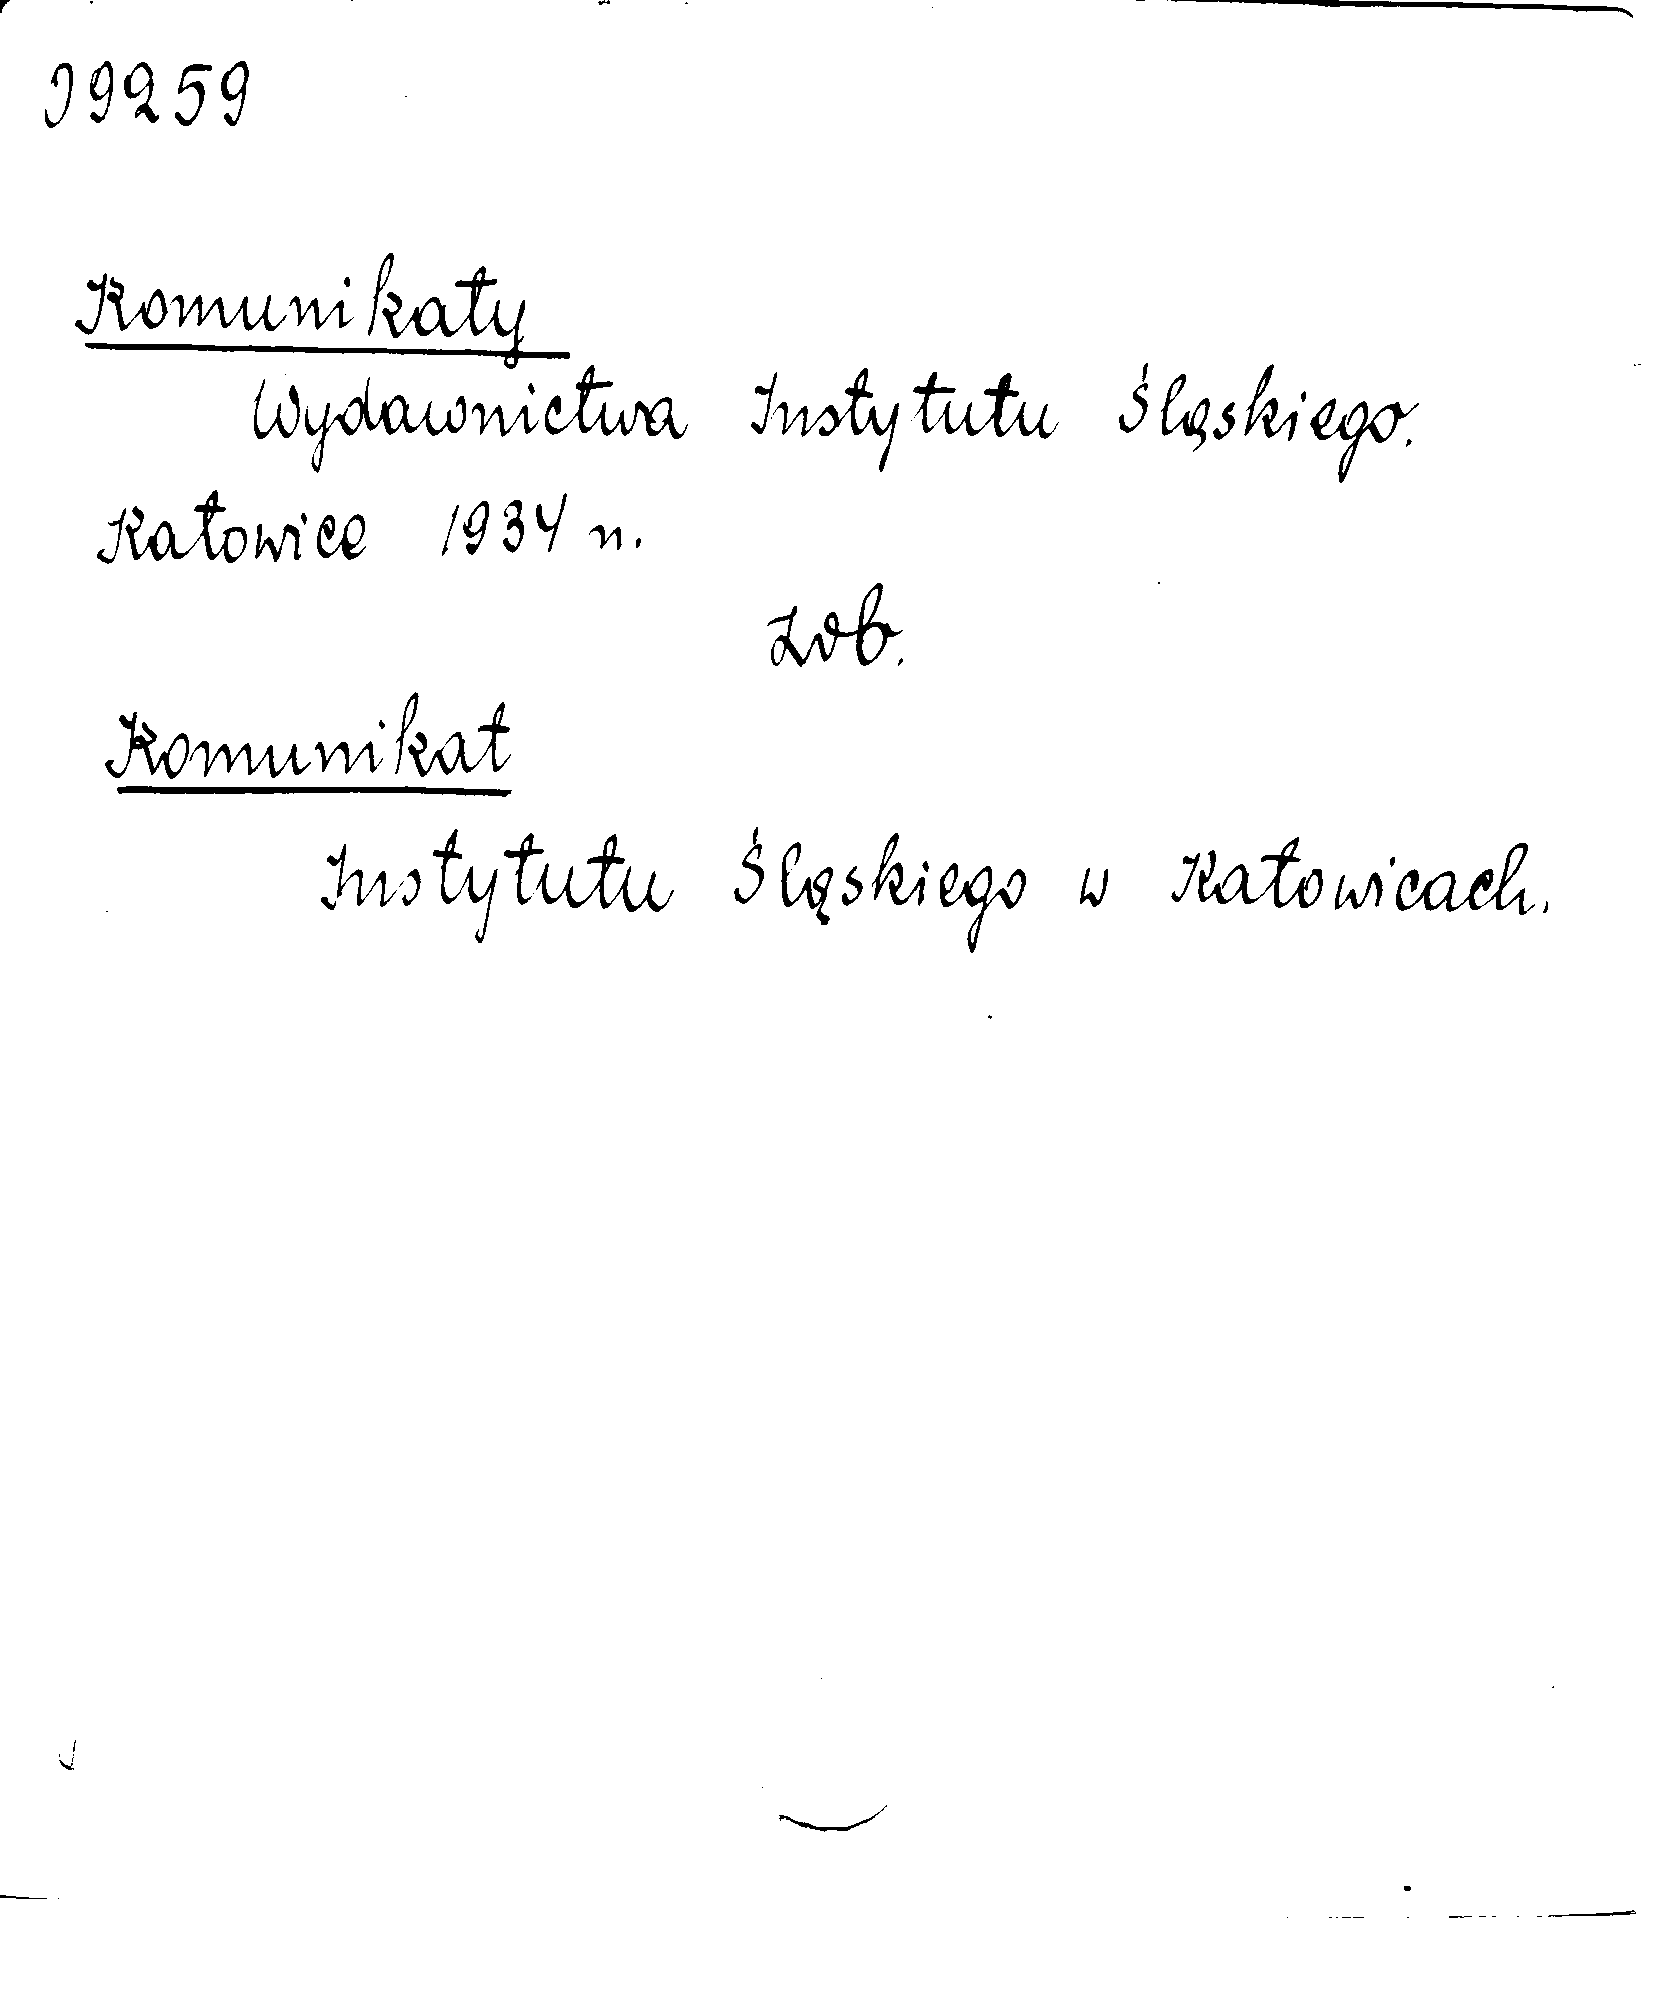 I 9259
Komunikaty
Wydawnictwa Instytutu Śląskiego.
Katowice 1934 n.
Zob.
Komunikat
Instytutu Śląskiego w Katowicach.